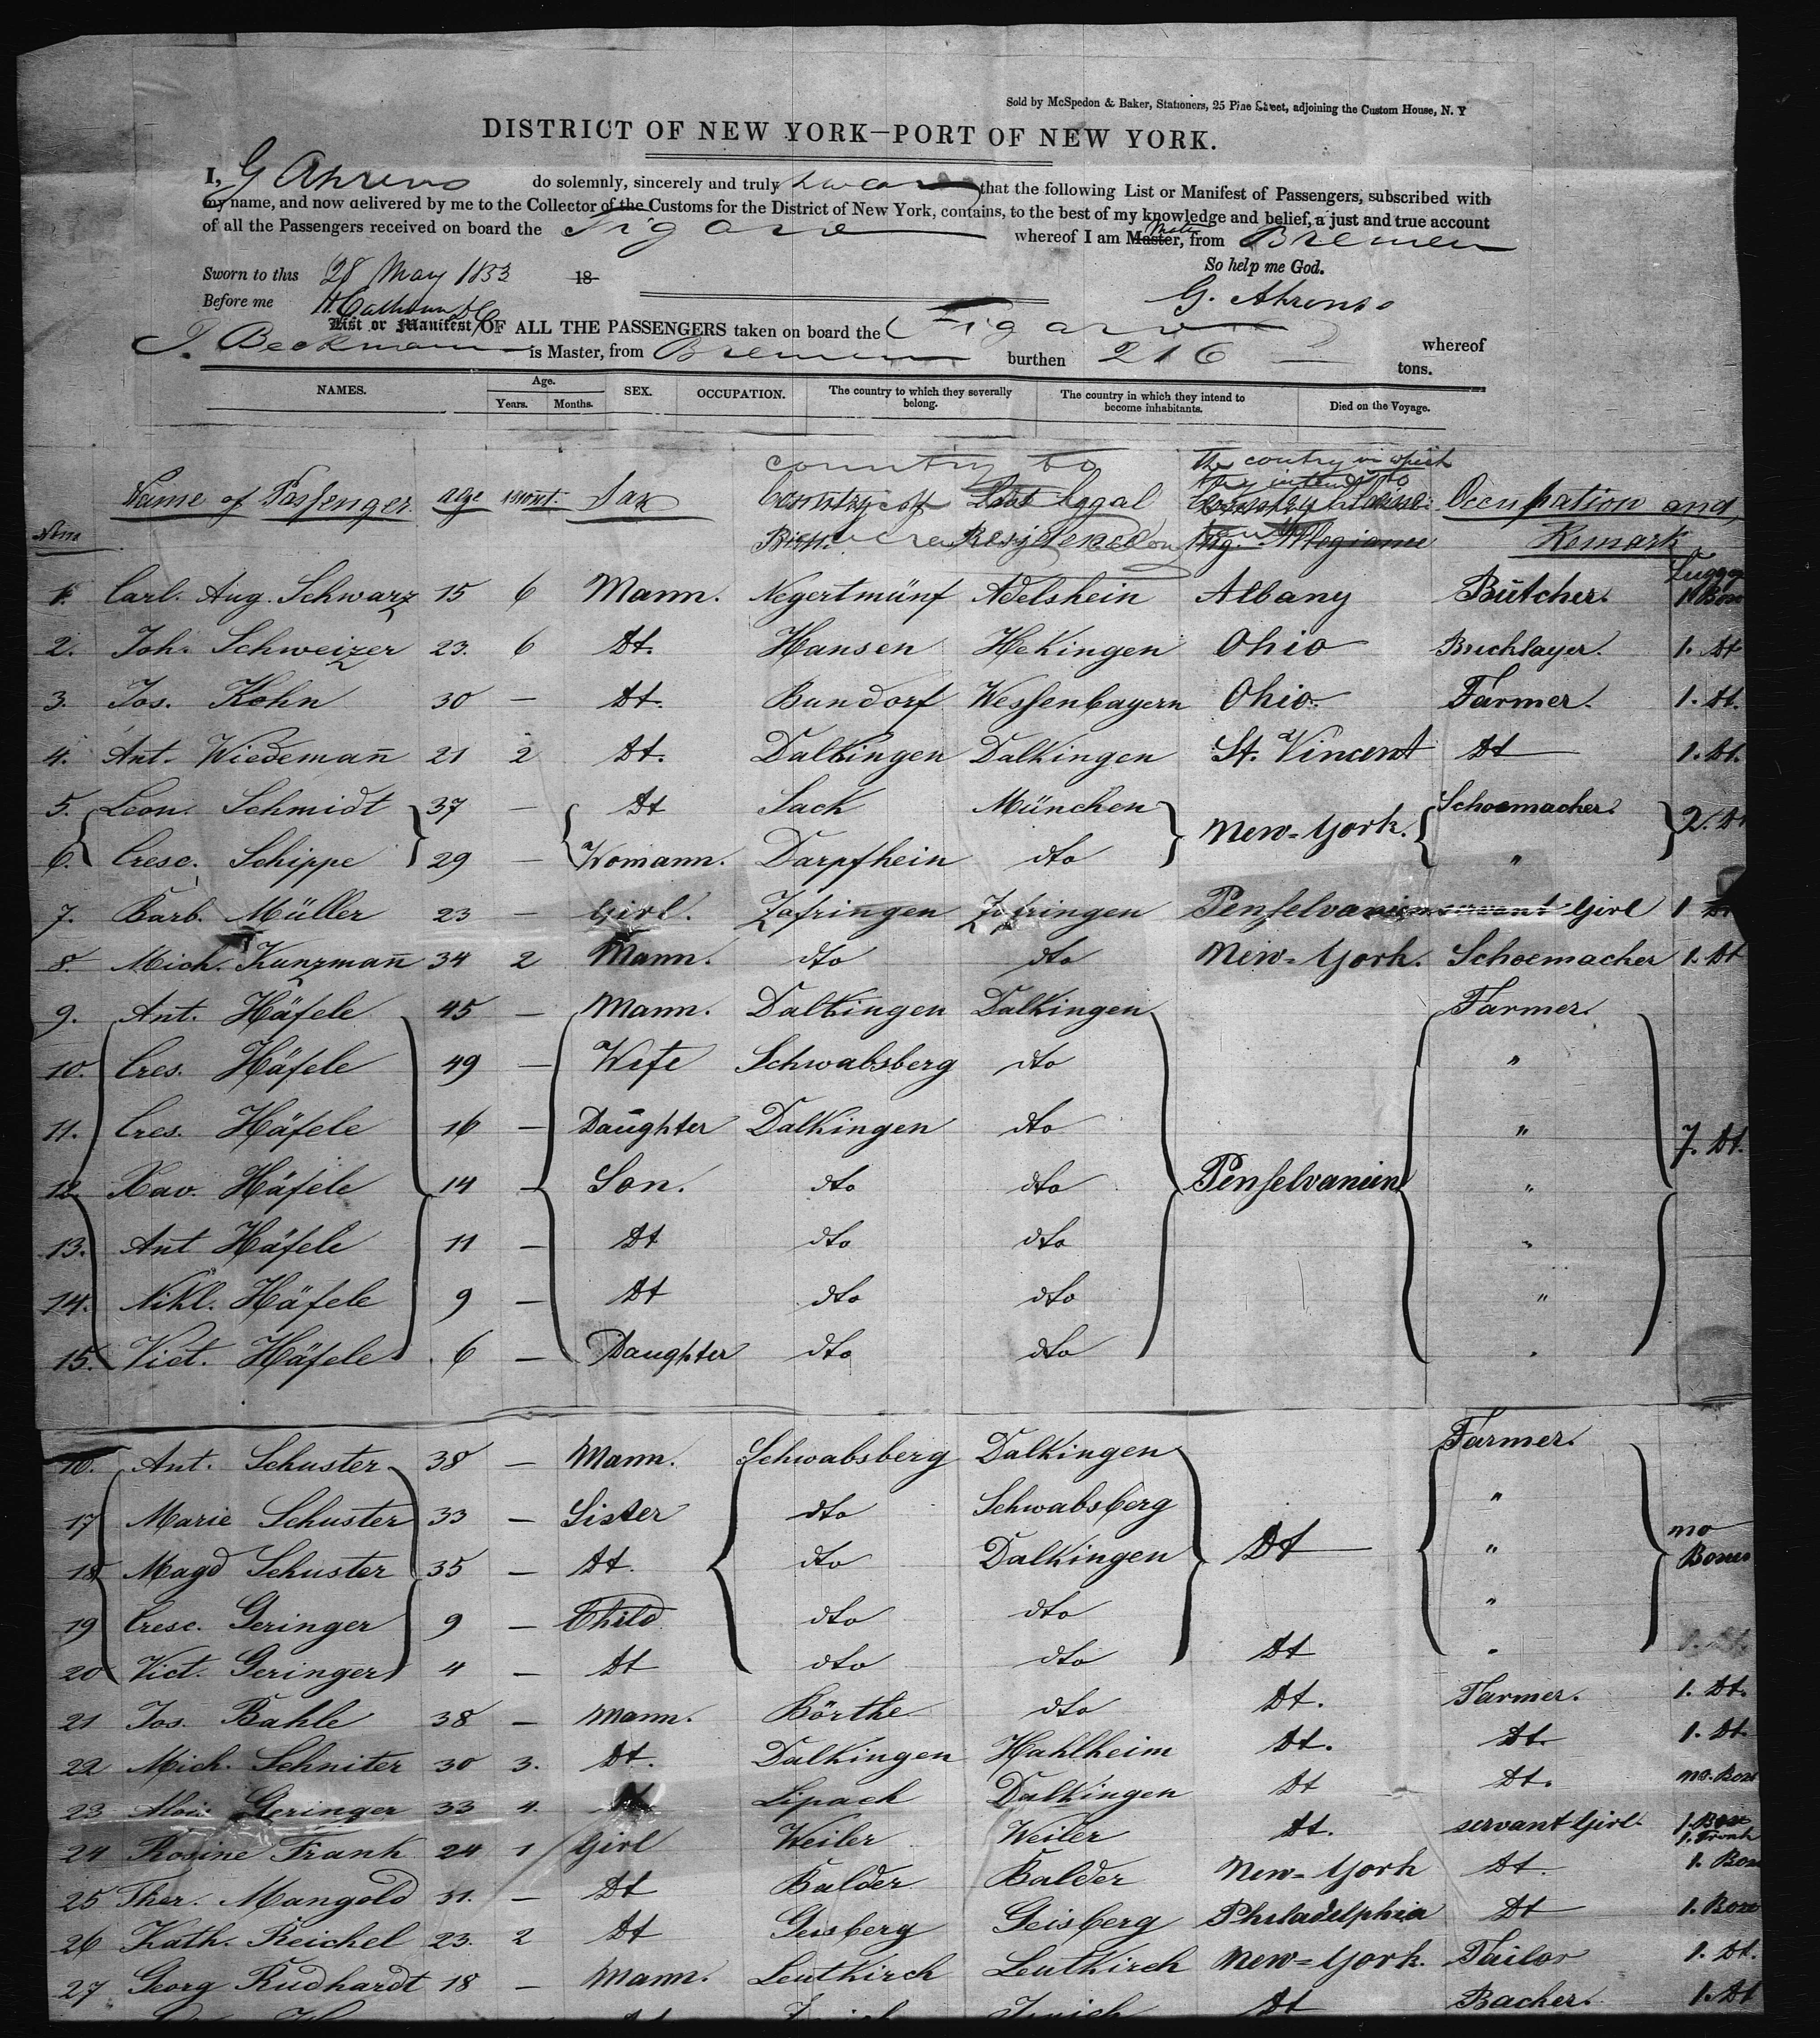 Sold by McSpedon & Baker, Stationers, 25 Pine Street, adjoining the Custom House, N. Y
DISTRICT OF NEW YORK—PORT OF NEW YORK.
I, G Ahrens do solemnly, sincerely and truly swear that the following List or Manifest of Passengers, subscribed with
my name, and now delivered by me to the Collector of the Customs for the District of New York, contains, to the best of my knowledge and belief, a just and true account
of all the Passengers received on board the Figaro whereof I am Master, Mate from Bremen
Sworn to this 28 May 1853 18 So help me God.
Before me H Calhoun G. Ahrens
List or Manifest OF ALL THE PASSENGERS taken on board the Figaro whereof
J. Beckmann is Master, from Bremen burthen 216 tons.
NAMES. Age. Years. Months. SEX. OCCUPATION. The country to which they severally belong. The country in which they intend to become inhabitants. Died on the Voyage.
country to the country in which
they intend to
Name of Passenger. age mont. Sax Country of Last Legal Occupation and
Birth Residence Allegiance Remark
1. Carl. Aug. Schwarz 15 6 Mann. Negertmünf Adelshein Albany Butcher. 1 Box
2. Joh. Schweizer 23. 6 Dt. Hansen Hekingen Ohio Bricklayer. 1. Dt.
3. Jos. Kohn 30 — Dt. Bundorf Wessenbayern Ohio. Farmer. 1. Dt.
4. Ant. Wiedemañ 21 2 Dt. Dalkingen Dalkingen St. Vincent Dt 1. Dt.
5. Leon. Schmidt 37 — Dt Lack München New=York. Schoemacher. 2. Dt
6. Cresc. Schippe 29 — Womann. Darpfhein dto "
7. Barb. Müller 23 — Girl. Zafringen Zafringen Penselvanien servant Girl 1 Dt
8. Mich. Kunzmañ 34 2 Mann. dto dto New=York. Schoemacher 1. Dt
9. Ant. Häfele 45 — Mann. Dalkingen Dalkingen Farmer.
10. Cres. Häfele 49 — Wife Schwabsberg dto "
11. Cres. Häfele 16 — Daughter Dalkingen dto " 7. Dt.
12. Xav. Häfele 14 — Son. dto dto Penselvanien "
13. Ant Häfele 11 — Dt dto dto "
14. Nikl. Häfele 9 — Dt dto dto "
15. Vict. Häfele 6 — Daughter dto dto "
16. Ant. Schuster 38 — Mann. Schwabsberg Dalkingen Farmer.
17 Marie Schuster 33 — Sister dto Schwabsberg "
18 Magd Schuster 35 — Dt. dto Dalkingen Dt " no Boxes
19 Cresc. Geringer 9 — Child dto dto "
20 Vict. Geringer 4 — Dt dto dto Dt "
21 Jos. Bahle 38 — Mann. Börthe dto Dt. Farmer. 1. Dt.
22 Mich. Schniter 30 3. Dt. Dalkingen Hahlheim Dt. Dt. 1. Dt
23 Alois Geringer 33 4. Lipach Dalkingen Dt Dt. no. Box
24 Rosine Frank 24 1 Girl Weiler Weiler Dt. servant Girl. 1. Box 1. Tronk
25 Ther. Mangold 31. — Dt Balder Balder New=York Dt. 1. Box
26 Kath. Reichel 23. 2 Dt Geisberg Geisberg Philadelphia Dt 1. Box
27 Georg Rudhardt 18 — Mann. Leutkirch Leutkirch New=York. Tailor 1. Dt.
Dt Bacher. 1. Dt